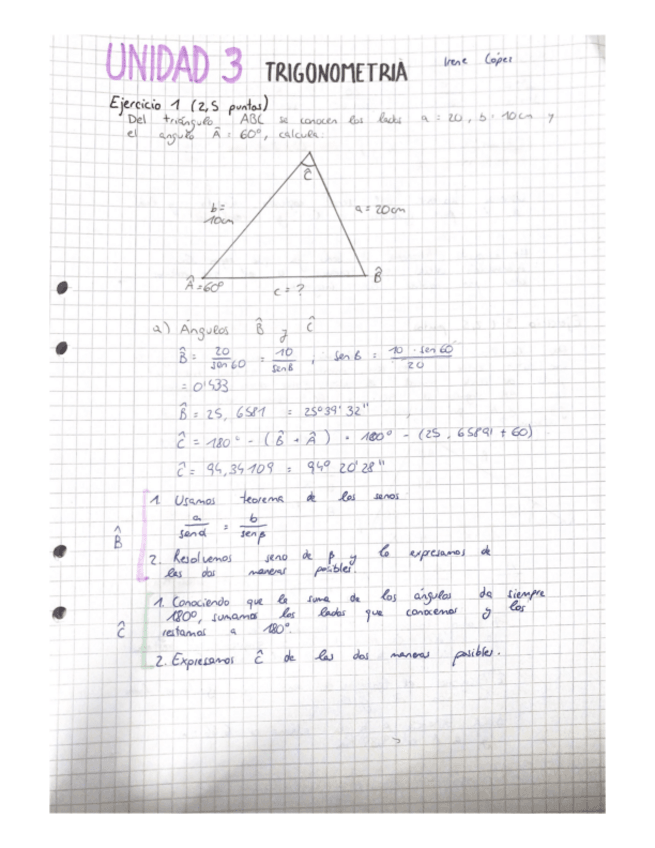 UNIDAD 3 TRIGONOMETRIA Irene López
Ejercicio 1 (2,5 puntos)
Del triángulo ABC se conocen los lados a = 20, b = 10cm y
el angulo Â = 60°, calcula:
Ĉ
b =
10cm
a = 20cm
Â = 60°
B̂
c = ?
a) Ángulos B̂ y Ĉ
B̂ = 20/sen 60 = 10/sen B , sen B = 10 · sen 60/20
= 0'433
B̂ = 25, 6581 = 25°39' 32"
Ĉ = 180° - (B̂ + Â) = 180° - (25, 65891 + 60)
Ĉ = 94,34109 = 94° 20' 28"
B̂
1. Usamos teorema de los senos
a/sen α = b/sen β
2. Resolvemos seno de β y lo expresamos de
las dos maneras posibles.
Ĉ
1. Conociendo que la suma de los ángulos da siempre
180°, sumamos los lados que conocemos y los
restamos a 180°.
2. Expresamos Ĉ de las dos maneras posibles.